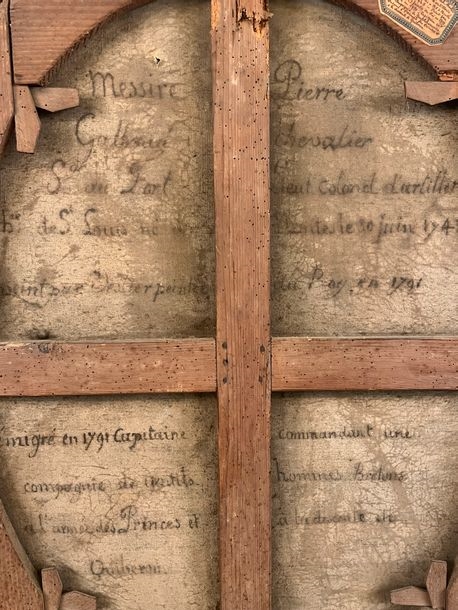 Messire Pierre
Chevalier
Sr du Port lieut colonel d'artillerie
de St Louis né Nantes le 30 juin 174
peint par peintre du Roy, en 1791
émigré en 1791 Capitaine commandant une
compagnie de gentils hommes Bretons
a l'armée des Princes et a la descente de
Quiberon